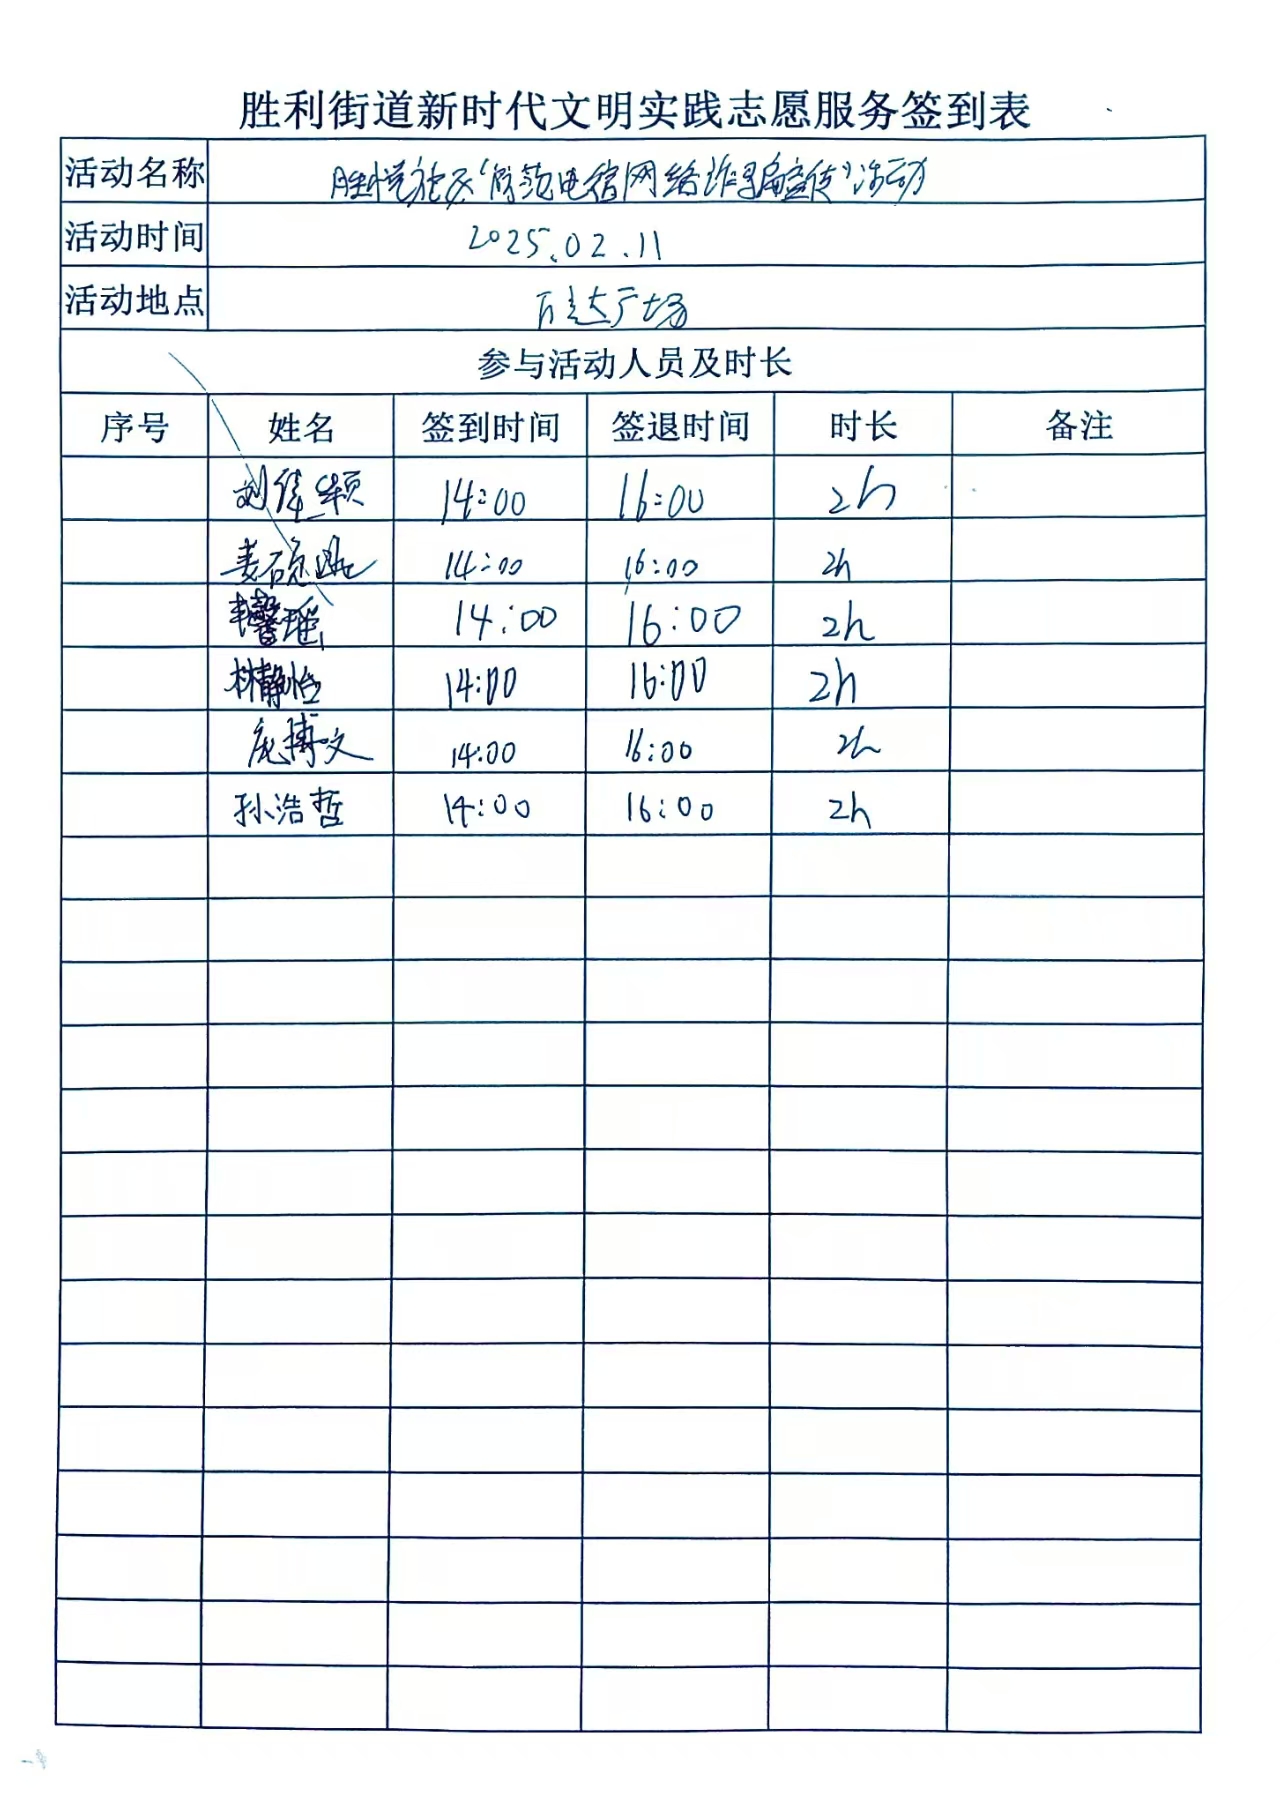 胜利街道新时代文明实践志愿服务签到表
活动名称 胜悦社区“防范电信网络诈骗宣传”活动
活动时间 2025.02.11
活动地点 万达广场
参与活动人员及时长
序号 姓名 签到时间 签退时间 时长 备注
14:00 16:00 2h
14:00 16:00 2h
14:00 16:00 2h
林静怡 14:00 16:00 2h
庞博文 14:00 16:00 2h
孙浩哲 14:00 16:00 2h